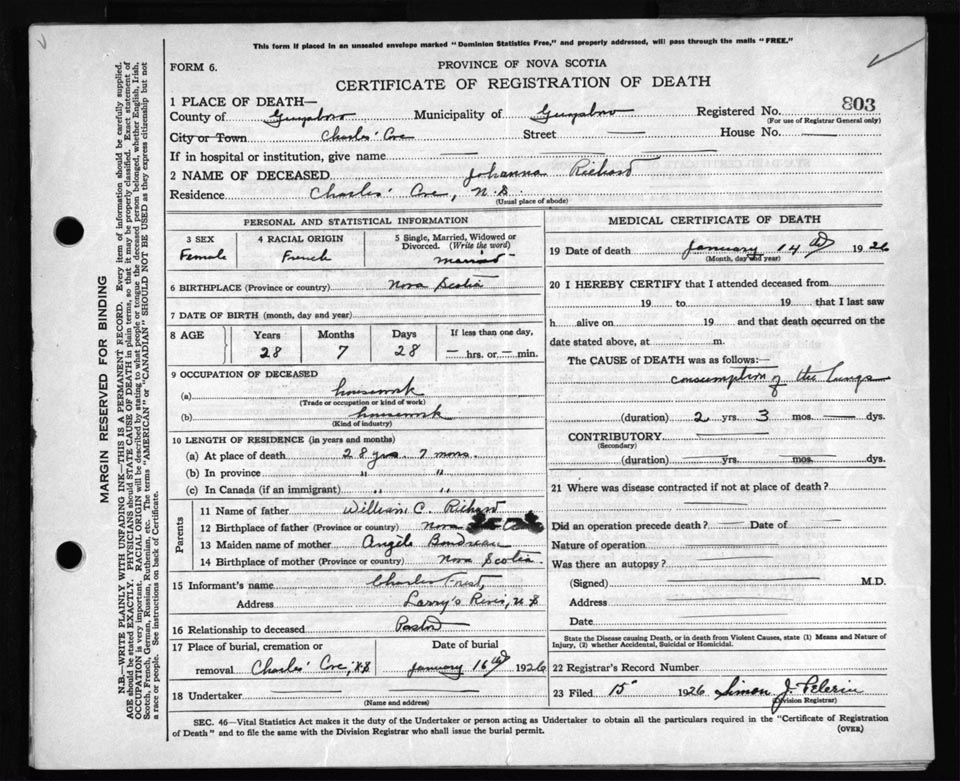 This form if placed in an unsealed envelope marked "Dominion Statistics Free," and properly addressed, will pass through the mails "FREE."
FORM 6.
PROVINCE OF NOVA SCOTIA
CERTIFICATE OF REGISTRATION OF DEATH
1 PLACE OF DEATH—
County of Guysboro Municipality of Guysboro Registered No. 803
(For use of Registrar General only)
City or Town Charles' Cove Street — House No. —
If in hospital or institution, give name
2 NAME OF DECEASED Johanna Richard
Residence Charles' Cove, N.S.
(Usual place of abode)
PERSONAL AND STATISTICAL INFORMATION
3 SEX 4 RACIAL ORIGIN 5 Single, Married, Widowed or Divorced. (Write the word)
Female French Married
6 BIRTHPLACE (Province or country) Nova Scotia
7 DATE OF BIRTH (month, day and year)
8 AGE Years Months Days If less than one day,
28 7 28 — hrs. or — min.
9 OCCUPATION OF DECEASED
(a) housework
(Trade or occupation or kind of work)
(b) housework
(Kind of industry)
10 LENGTH OF RESIDENCE (in years and months)
(a) At place of death 28 yrs 7 mons.
(b) In province " "
(c) In Canada (if an immigrant) " "
Parents
11 Name of father William C. Richard
12 Birthplace of father (Province or country) Nova Scotia
13 Maiden name of mother Angele Boudreau
14 Birthplace of mother (Province or country) Nova Scotia
15 Informant's name Charles Forest,
Address Larry's River, N.S
16 Relationship to deceased Pastor
17 Place of burial, cremation or Date of burial
removal Charles' Cove, N.S January 16th 1926
18 Undertaker
(Name and address)
MEDICAL CERTIFICATE OF DEATH
19 Date of death January 14th 1926
(Month, day and year)
20 I HEREBY CERTIFY that I attended deceased from
19 to 19 that I last saw
h alive on 19 and that death occurred on the
date stated above, at m.
The CAUSE of DEATH was as follows:—
consumption of the lungs
(duration) 2 yrs. 3 mos. — dys.
CONTRIBUTORY
(Secondary)
(duration) yrs. mos. dys.
21 Where was disease contracted if not at place of death?
Did an operation precede death? — Date of —
Nature of operation
Was there an autopsy?
(Signed) M.D.
Address
Date
State the Disease causing Death, or in death from Violent Causes, state (1) Means and Nature of
Injury, (2) whether Accidental, Suicidal or Homicidal.
22 Registrar's Record Number
23 Filed 15 1926 Simon J. Pelerin
(Division Registrar)
SEC. 46—Vital Statistics Act makes it the duty of the Undertaker or person acting as Undertaker to obtain all the particulars required in the "Certificate of Registration
of Death" and to file the same with the Division Registrar who shall issue the burial permit.
(OVER)
MARGIN RESERVED FOR BINDING
N.B.—WRITE PLAINLY WITH UNFADING INK—THIS IS A PERMANENT RECORD. Every item of information should be carefully supplied.
AGE should be stated EXACTLY. PHYSICIANS should STATE CAUSE OF DEATH in plain terms, so that it may be properly classified. Exact statement of
OCCUPATION is very important. RACIAL ORIGIN will be described by stating to what people or tongue the deceased person belonged, whether English, Irish,
Scotch, French, German, Russian, Ruthenian, etc. The terms "AMERICAN" or "CANADIAN" SHOULD NOT BE USED as they express citizenship but not
a race or people. See instructions on back of Certificate.